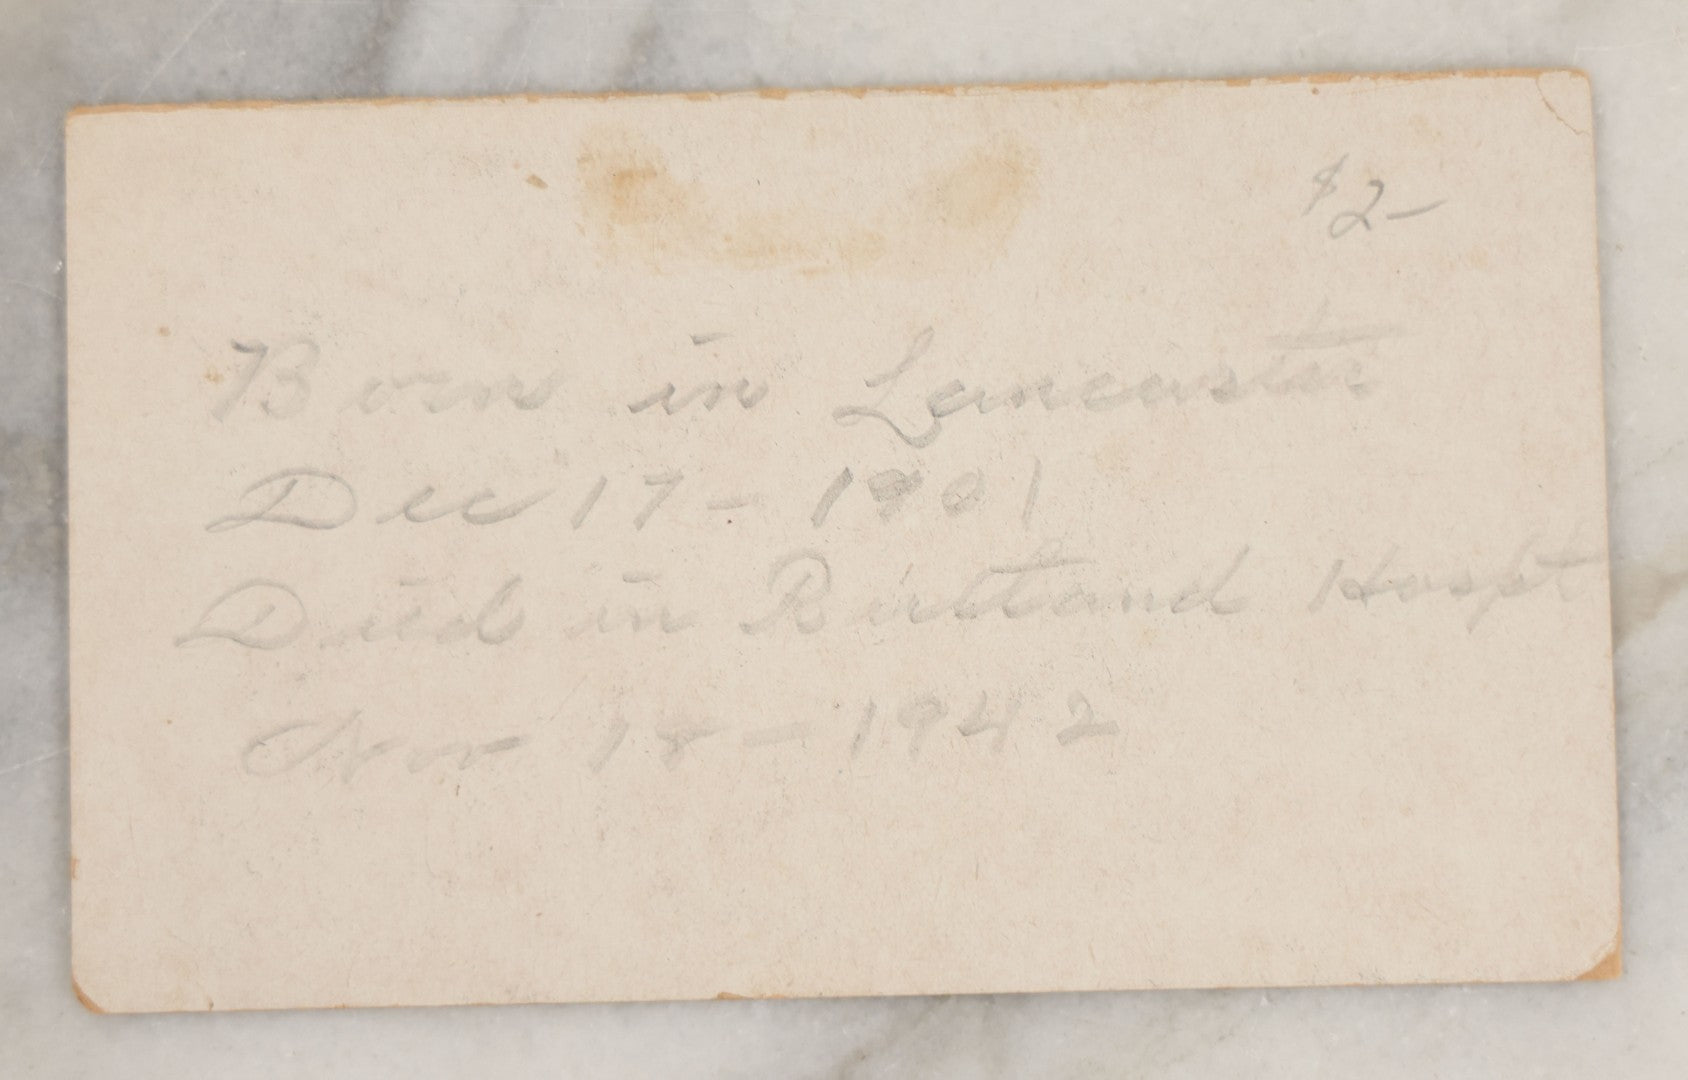 $2-
Born in Lancaster
Dec 17 - 1901
Died in Rutland Hospt
Nov 18 - 1942